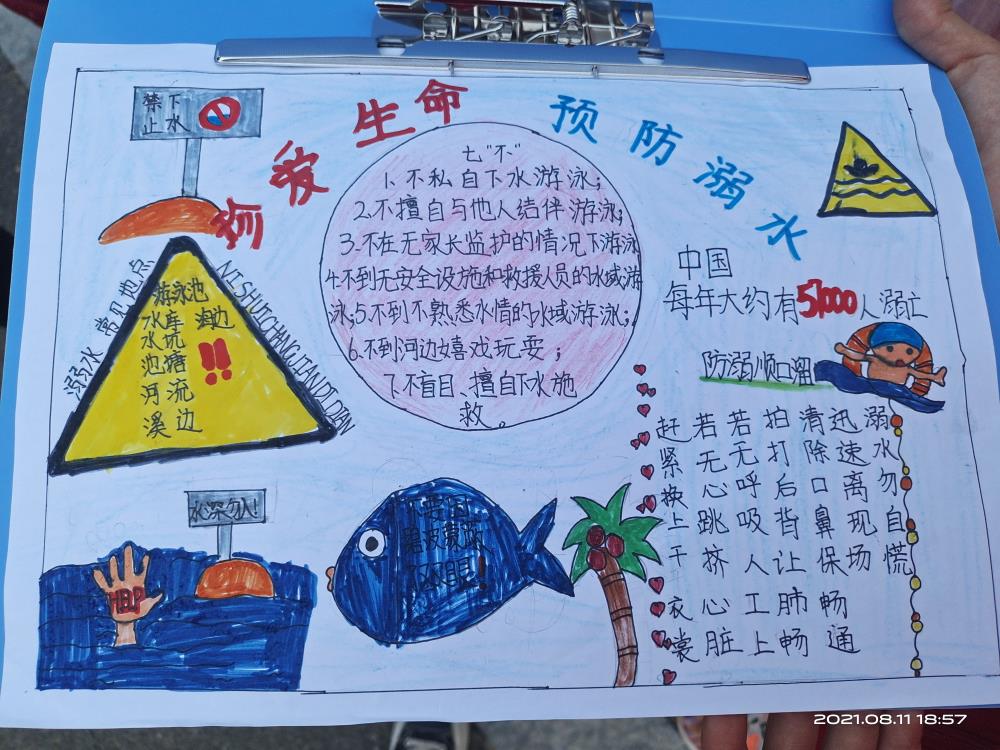 珍爱生命 预防溺水
禁止
下水
七"不"
1、不私自下水游泳;
2.不擅自与他人结伴游泳;
3.不在无家长监护的情况下游泳
4.不到无安全设施和救援人员的水域游
泳;5.不到不熟悉水情的水域游泳;
6.不到河边嬉戏玩耍;
7.不盲目、擅自下水施
救。
溺水 常见地点
NISHUICHANGJIANDIDIAN
游泳池
水库 海边
水坑
池塘
河流
溪边
!!
中国
每年大约有57000人溺亡
防溺顺口溜
溺水勿自慌
迅速离现场
清除口鼻保畅通
拍打后背让肺畅
若无呼吸人工上
若无心跳挤心脏
赶紧换上干衣裳
水深勿入!
HELP
2021.08.11 18:57